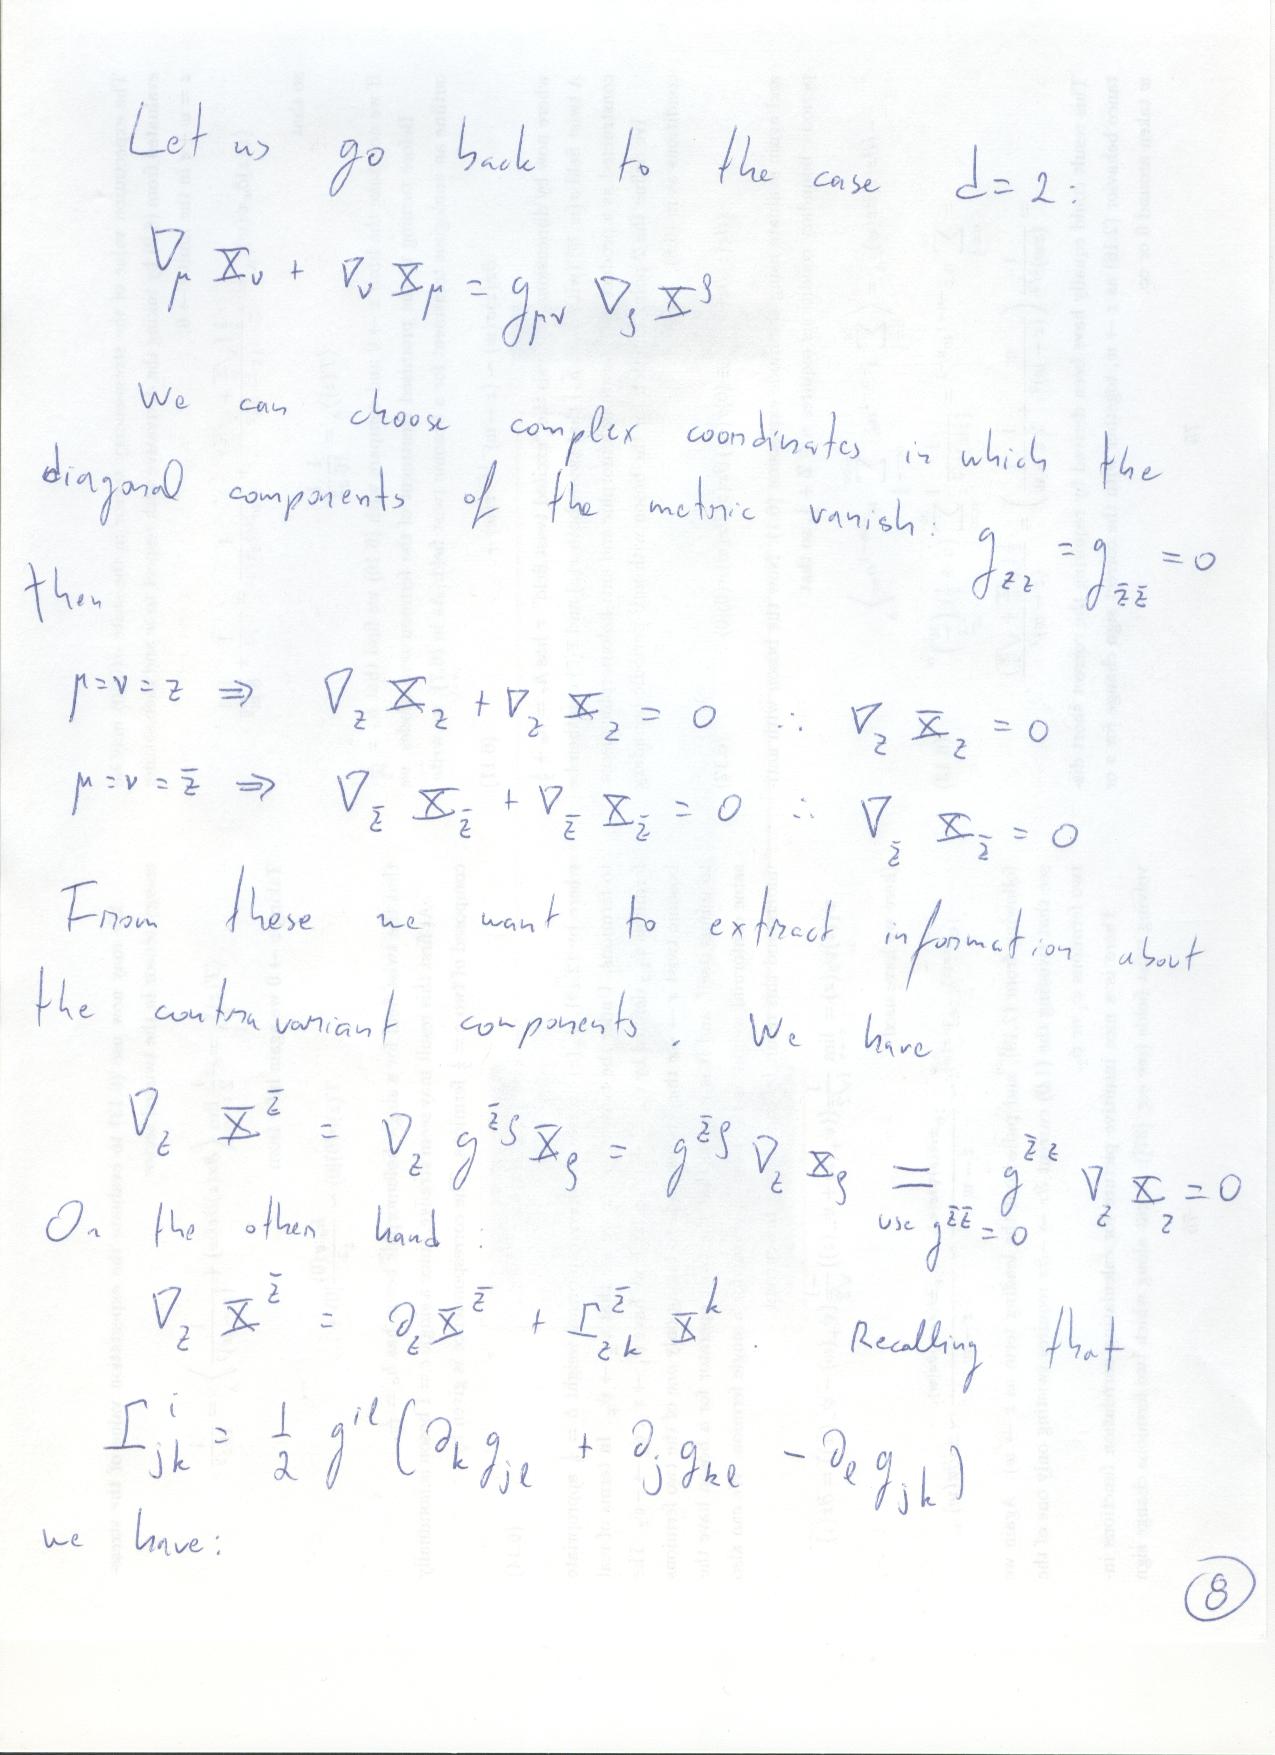 Let us go back to the case d = 2:
∇_μ X_ν + ∇_ν X_μ = g_{μν} ∇_ρ X^ρ
We can choose complex coordinates in which the
diagonal components of the metric vanish: g_{zz} = g_{z̄z̄} = 0
then
μ=ν=z ⇒ ∇_z X_z + ∇_z X_z = 0 ∴ ∇_z X_z = 0
μ=ν=z̄ ⇒ ∇_z̄ X_z̄ + ∇_z̄ X_z̄ = 0 ∴ ∇_z̄ X_z̄ = 0
From these we want to extract information about
the contravariant components. We have
∇_z X^z̄ = ∇_z g^{z̄ρ} X_ρ = g^{z̄ρ} ∇_z X_ρ = g^{z̄z} ∇_z X_z = 0
use g^{z̄z̄} = 0
On the other hand:
∇_z X^z̄ = ∂_z X^z̄ + Γ^z̄_{zk} X^k. Recalling that
Γ^i_{jk} = 1/2 g^{il} (∂_k g_{jl} + ∂_j g_{kl} - ∂_l g_{jk})
we have:
8